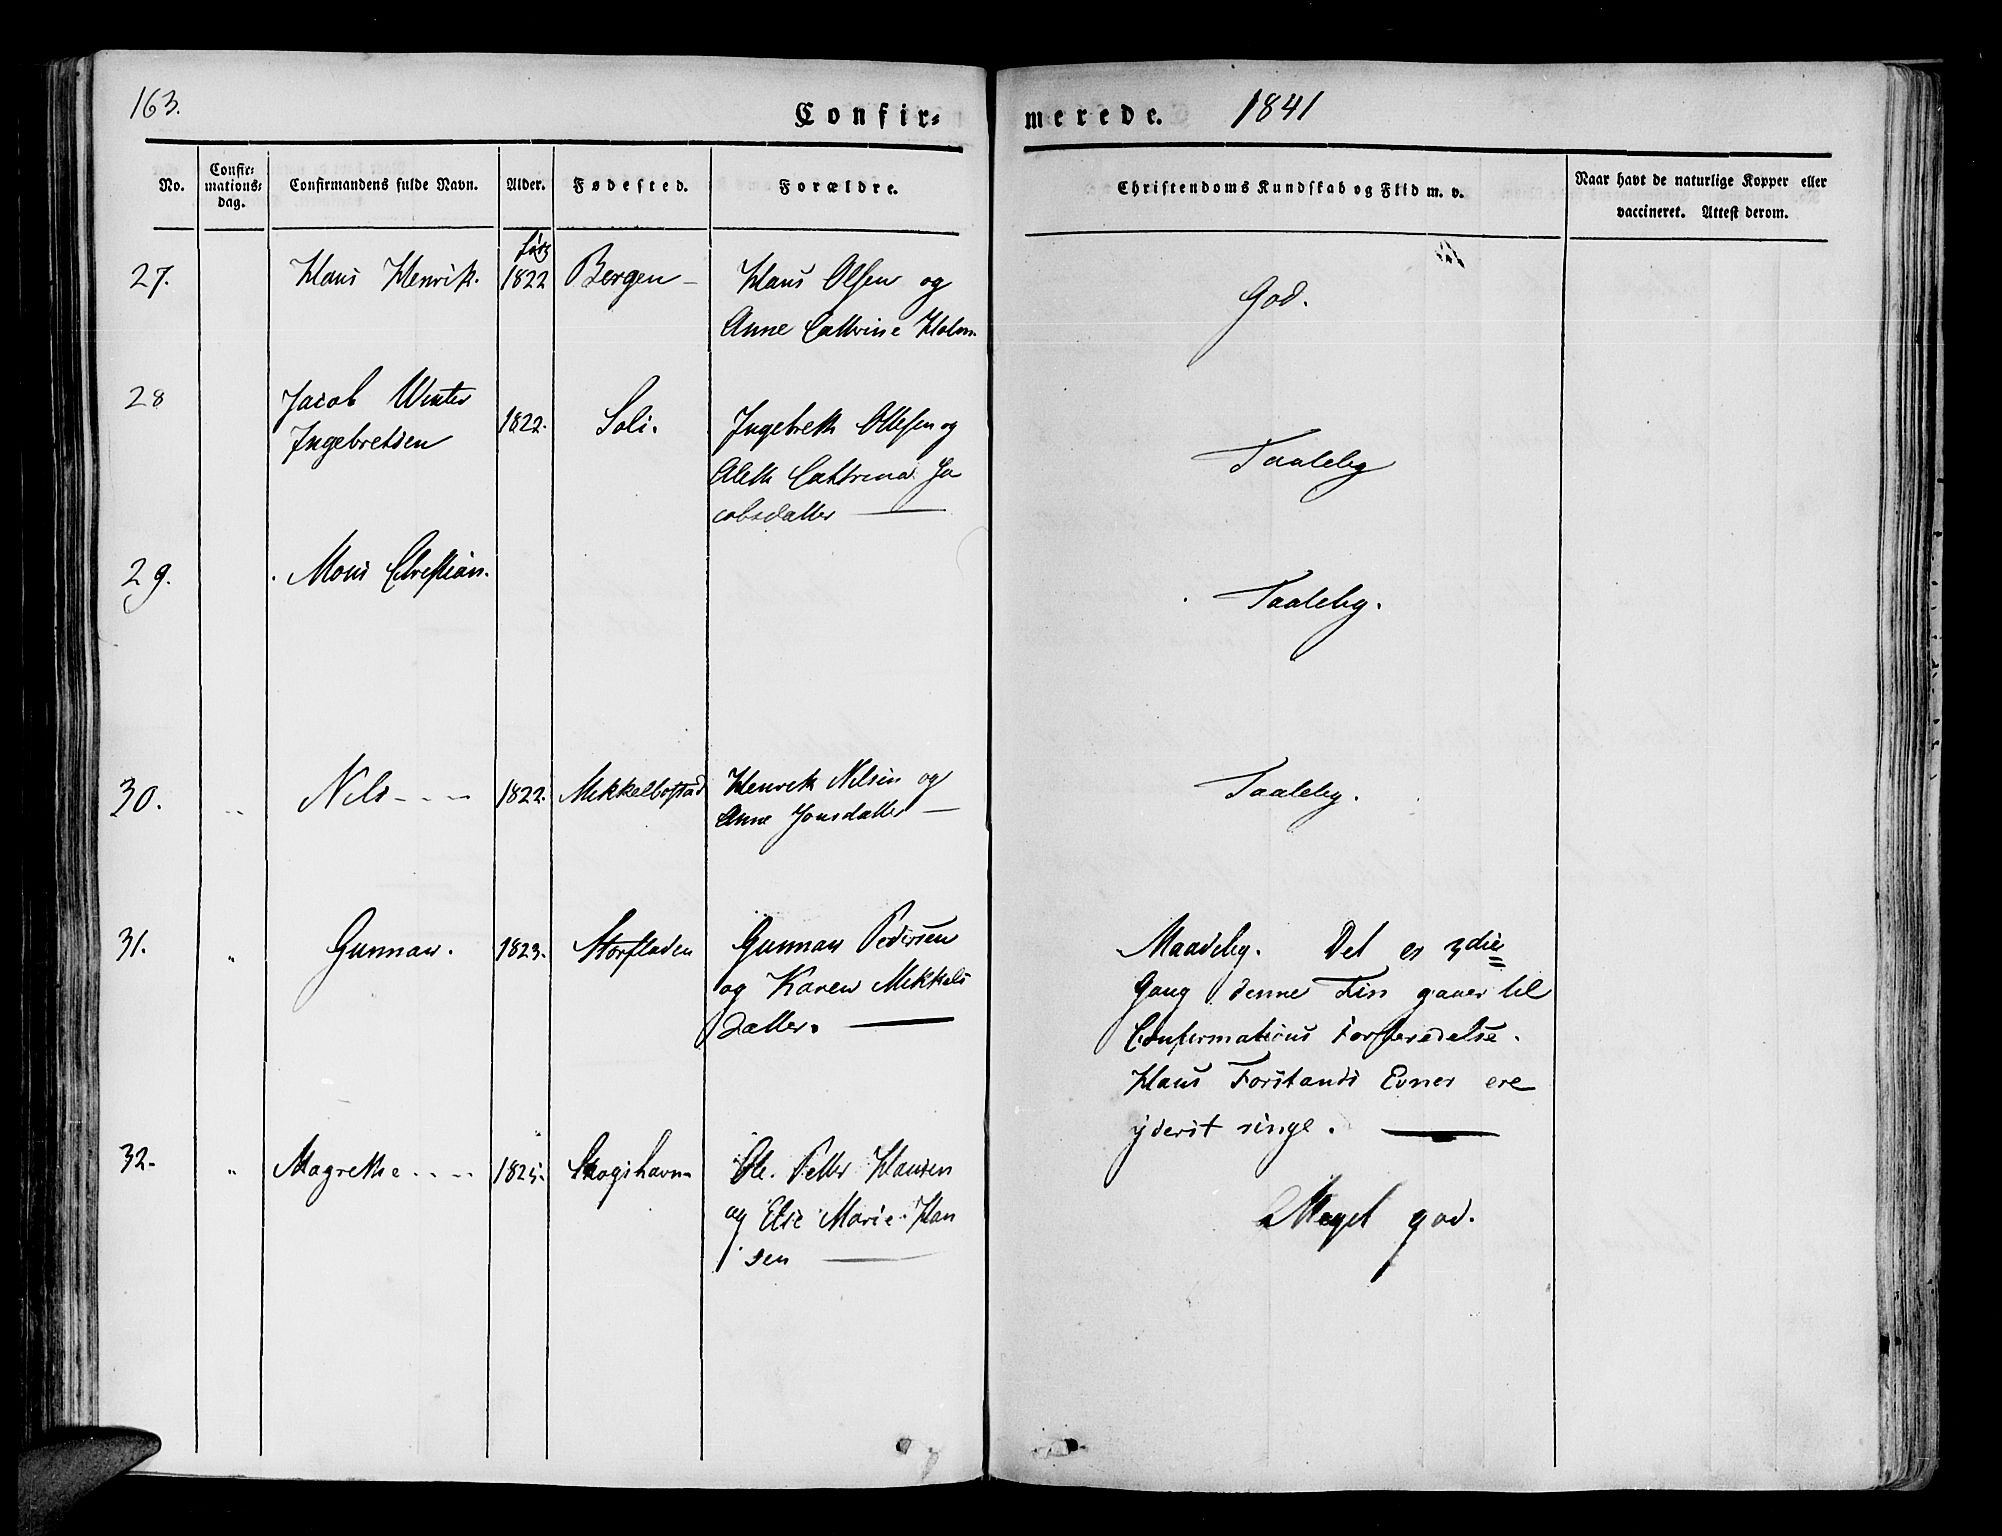 163.
Confir=
merede. 1841
No.
Confir=
mations=
dag.
Confirmandens fulde Navn.
Alder.
Fødested.
Forældre.
Christendoms Kundskab og Flid m. v.
Naar havt de naturlige Kopper eller
vaccineret. Attest derom.
27. Hans Henrik. 1822 Bergen – Hans Olsen og God.
Anne Cathrine Holm.
28 Jacob Winter
Ingebretsen 1822. Soli. Ingebreth Ollesen og Taaleleg
Aleth Cathrina Ja
cobsdatter —
29. Mons Christian. Taaleleg.
30. " Nils - - - - 1822. Mikkelbostad Henrik Nilsen og Taaleleg.
Anne Jonsdatter —
31. " Gunnar. 1823. Storfladen Gunnar Pedersen Maadeleg. Det er 3die
og Karen Mikkels Gang denne Fin gaaer til
datter. — Confirmations Forberedelse.
Hans Forstands Evner ere
yderst ringe. —
32. " Magrethe . . - - 1825. Skogshavn Ole. Petter Hansen
og Else Marie Han Meget god.
sen —